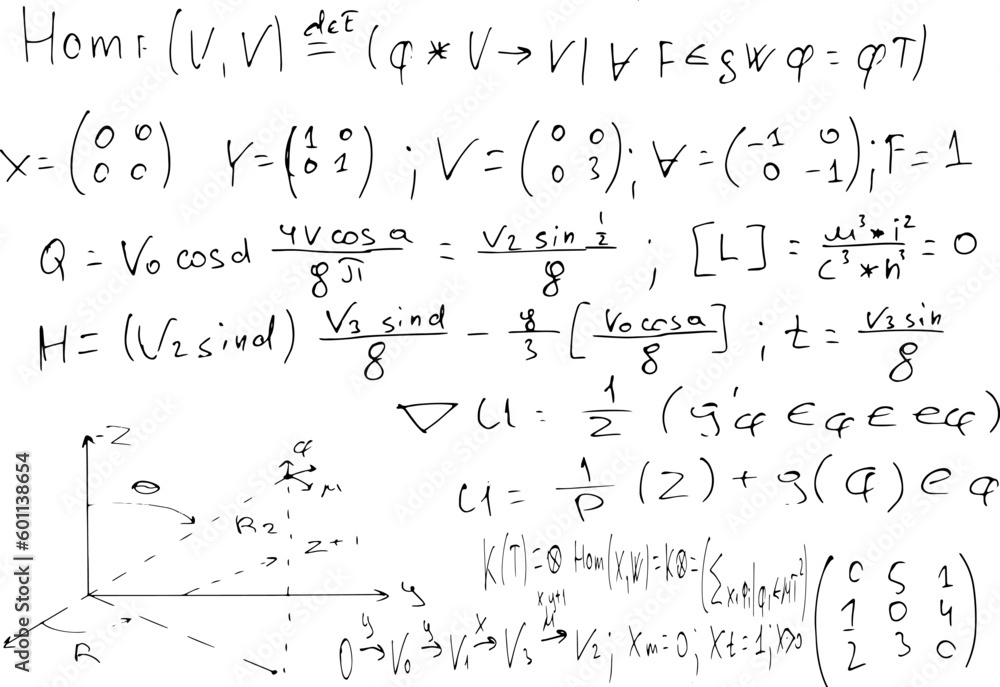 Hom F (V, V) def = (φ * V → V | ∀ F ∈ g W φ = φ T)
X = (0 0 0 0) Y = (1 0 0 1) ; V = (0 0 0 3) ; ∀ = (-1 0 0 -1) ; F = 1
Q = V0 cos d 4V cos a / 8π = V2 sin 1/2 / 8 ; [L] = M^3 * i^2 / c^3 * h^3 = 0
H = (V2 sin d) V3 sin d / 8 - 8/3 [V0 cos a / 8] ; t = V3 sin / 8
▽ U = 1/2 (g'φ ∈ φ ∈ eφ)
U = 1/P (2) + g(φ) e φ
-Z
Θ
φ
M
R2
Z+1
y
R
K(T) = ⊗ Hom(X,W) = K⊗ =
0 y→ V0 y→ V1 x→ V3 M→ V2 ; Xm = 0 ; Xt = 1 ; X>0
x,y+1
0 5 1
1 0 4
2 3 0
Adobe Stock | #601138654